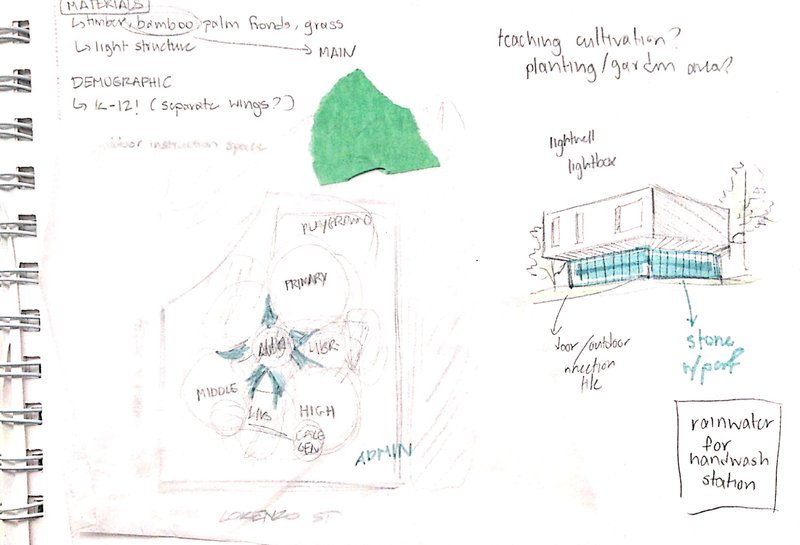 MATERIALS
↳ timber, bamboo, palm fronds, grass
↳ light structure → MAIN
DEMOGRAPHIC
↳ K-12! (separate wings?)
outdoor instruction space
teaching cultivation?
planting/garden area?
lightwell
lightbox
PLAYGROUND
PRIMARY
LIBR.
MIDDLE
HIGH
ADMIN
LORENZO ST
/outdoor
stone
w/perf
rainwater
for
handwash
station